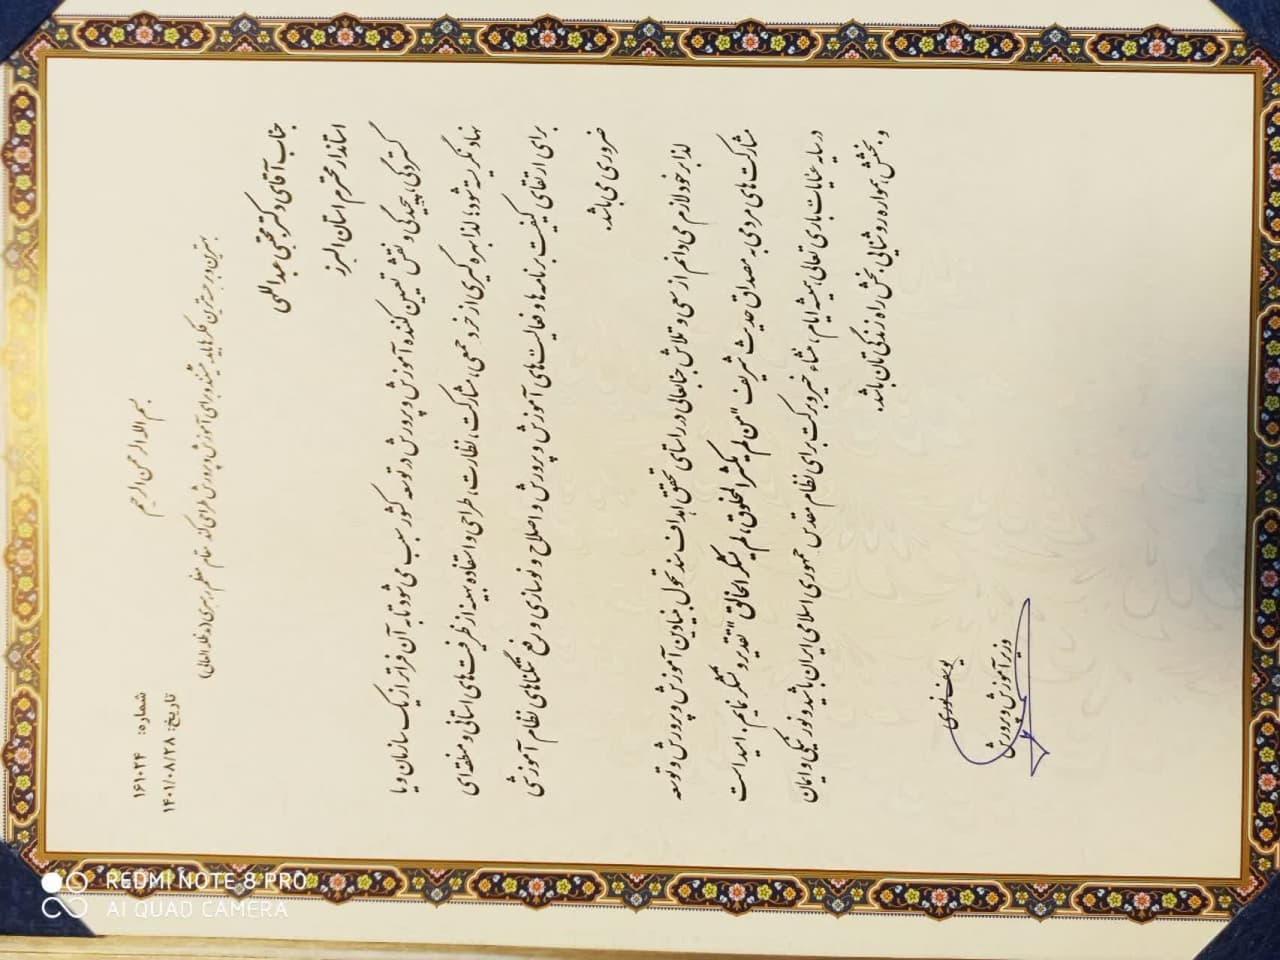 بسم الله الرحمن الرحیم
شماره: ۱۶۱۰۲۴
تاریخ: ۱۴۰۱/۰۸/۲۸
بهترین و برجسته‌ترین فکرها باید بنشینند و برای آموزش و پرورش طراحی کنند مقام معظم رهبری (مدظله العالی)
جناب آقای دکتر مجتبی عبداللهی
استاندار محترم استان البرز
گستردگی، پیچیدگی و نقش تعیین کننده آموزش و پرورش در توسعه کشور سبب می شود تا به آن فراتر از یک سازمان و یا
نهاد نگریسته شود؛ لذا بهره گیری از خرد جمعی، مشارکت، نظارت، طراحی و استفاده بهینه از ظرفیت‌های استانی و منطقه‌ای
برای ارتقای کیفیت برنامه ها و فعالیت‌های آموزش و پرورش و اصلاح و نوسازی و رفع تنگناهای نظام آموزشی
ضروری می باشد.
لذا بر خود لازم می دانم از سعی و تلاش جنابعالی در راستای تحقق اهداف سند تحول بنیادین آموزش و پرورش و توسعه
مشارکت های مردمی به مصداق حدیث شریف "من لم یشکر المخلوق، لم یشکر الخالق" تقدیر و تشکر نمایم. امید است
در سایه عنایات باری تعالی، همیشه ایام، منشاء خیر و برکت برای نظام مقدس جمهوری اسلامی ایران باشید و نور نیکی و ایمان
و بخشش، همواره روشنایی بخش راه زندگی تان باشد.
یوسف نوری
وزیر آموزش و پرورش
REDMI NOTE 8 PRO
AI QUAD CAMERA